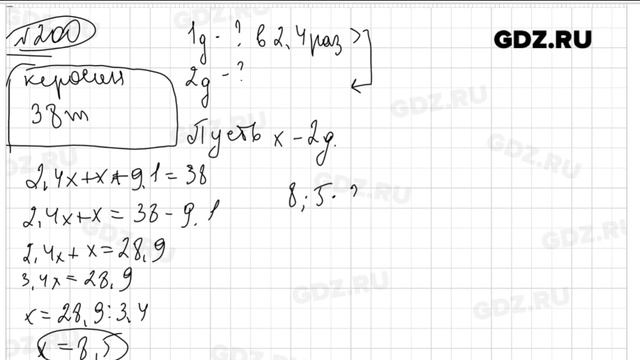 №200
керосин
38 т
1д - ? в 2,4 раз >
2д - ?
GDZ.RU
Пусть x - 2д.
2,4x+x+9,1=38
2,4x+x = 38-9,1
2,4x+x=28,9
3,4x=28,9
x=28,9:3,4
x=8,5
8,5. ?
GDZ.RU
GDZ.RU
GDZ.RU
GDZ.RU
GDZ.RU
GDZ.RU